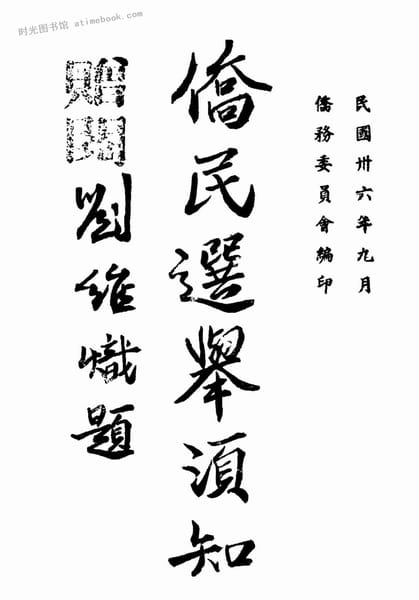 时光图书馆 atimebook.com
民國卅六年九月
僑務委員會編印
僑民選舉須知
劉維熾題
贈閱